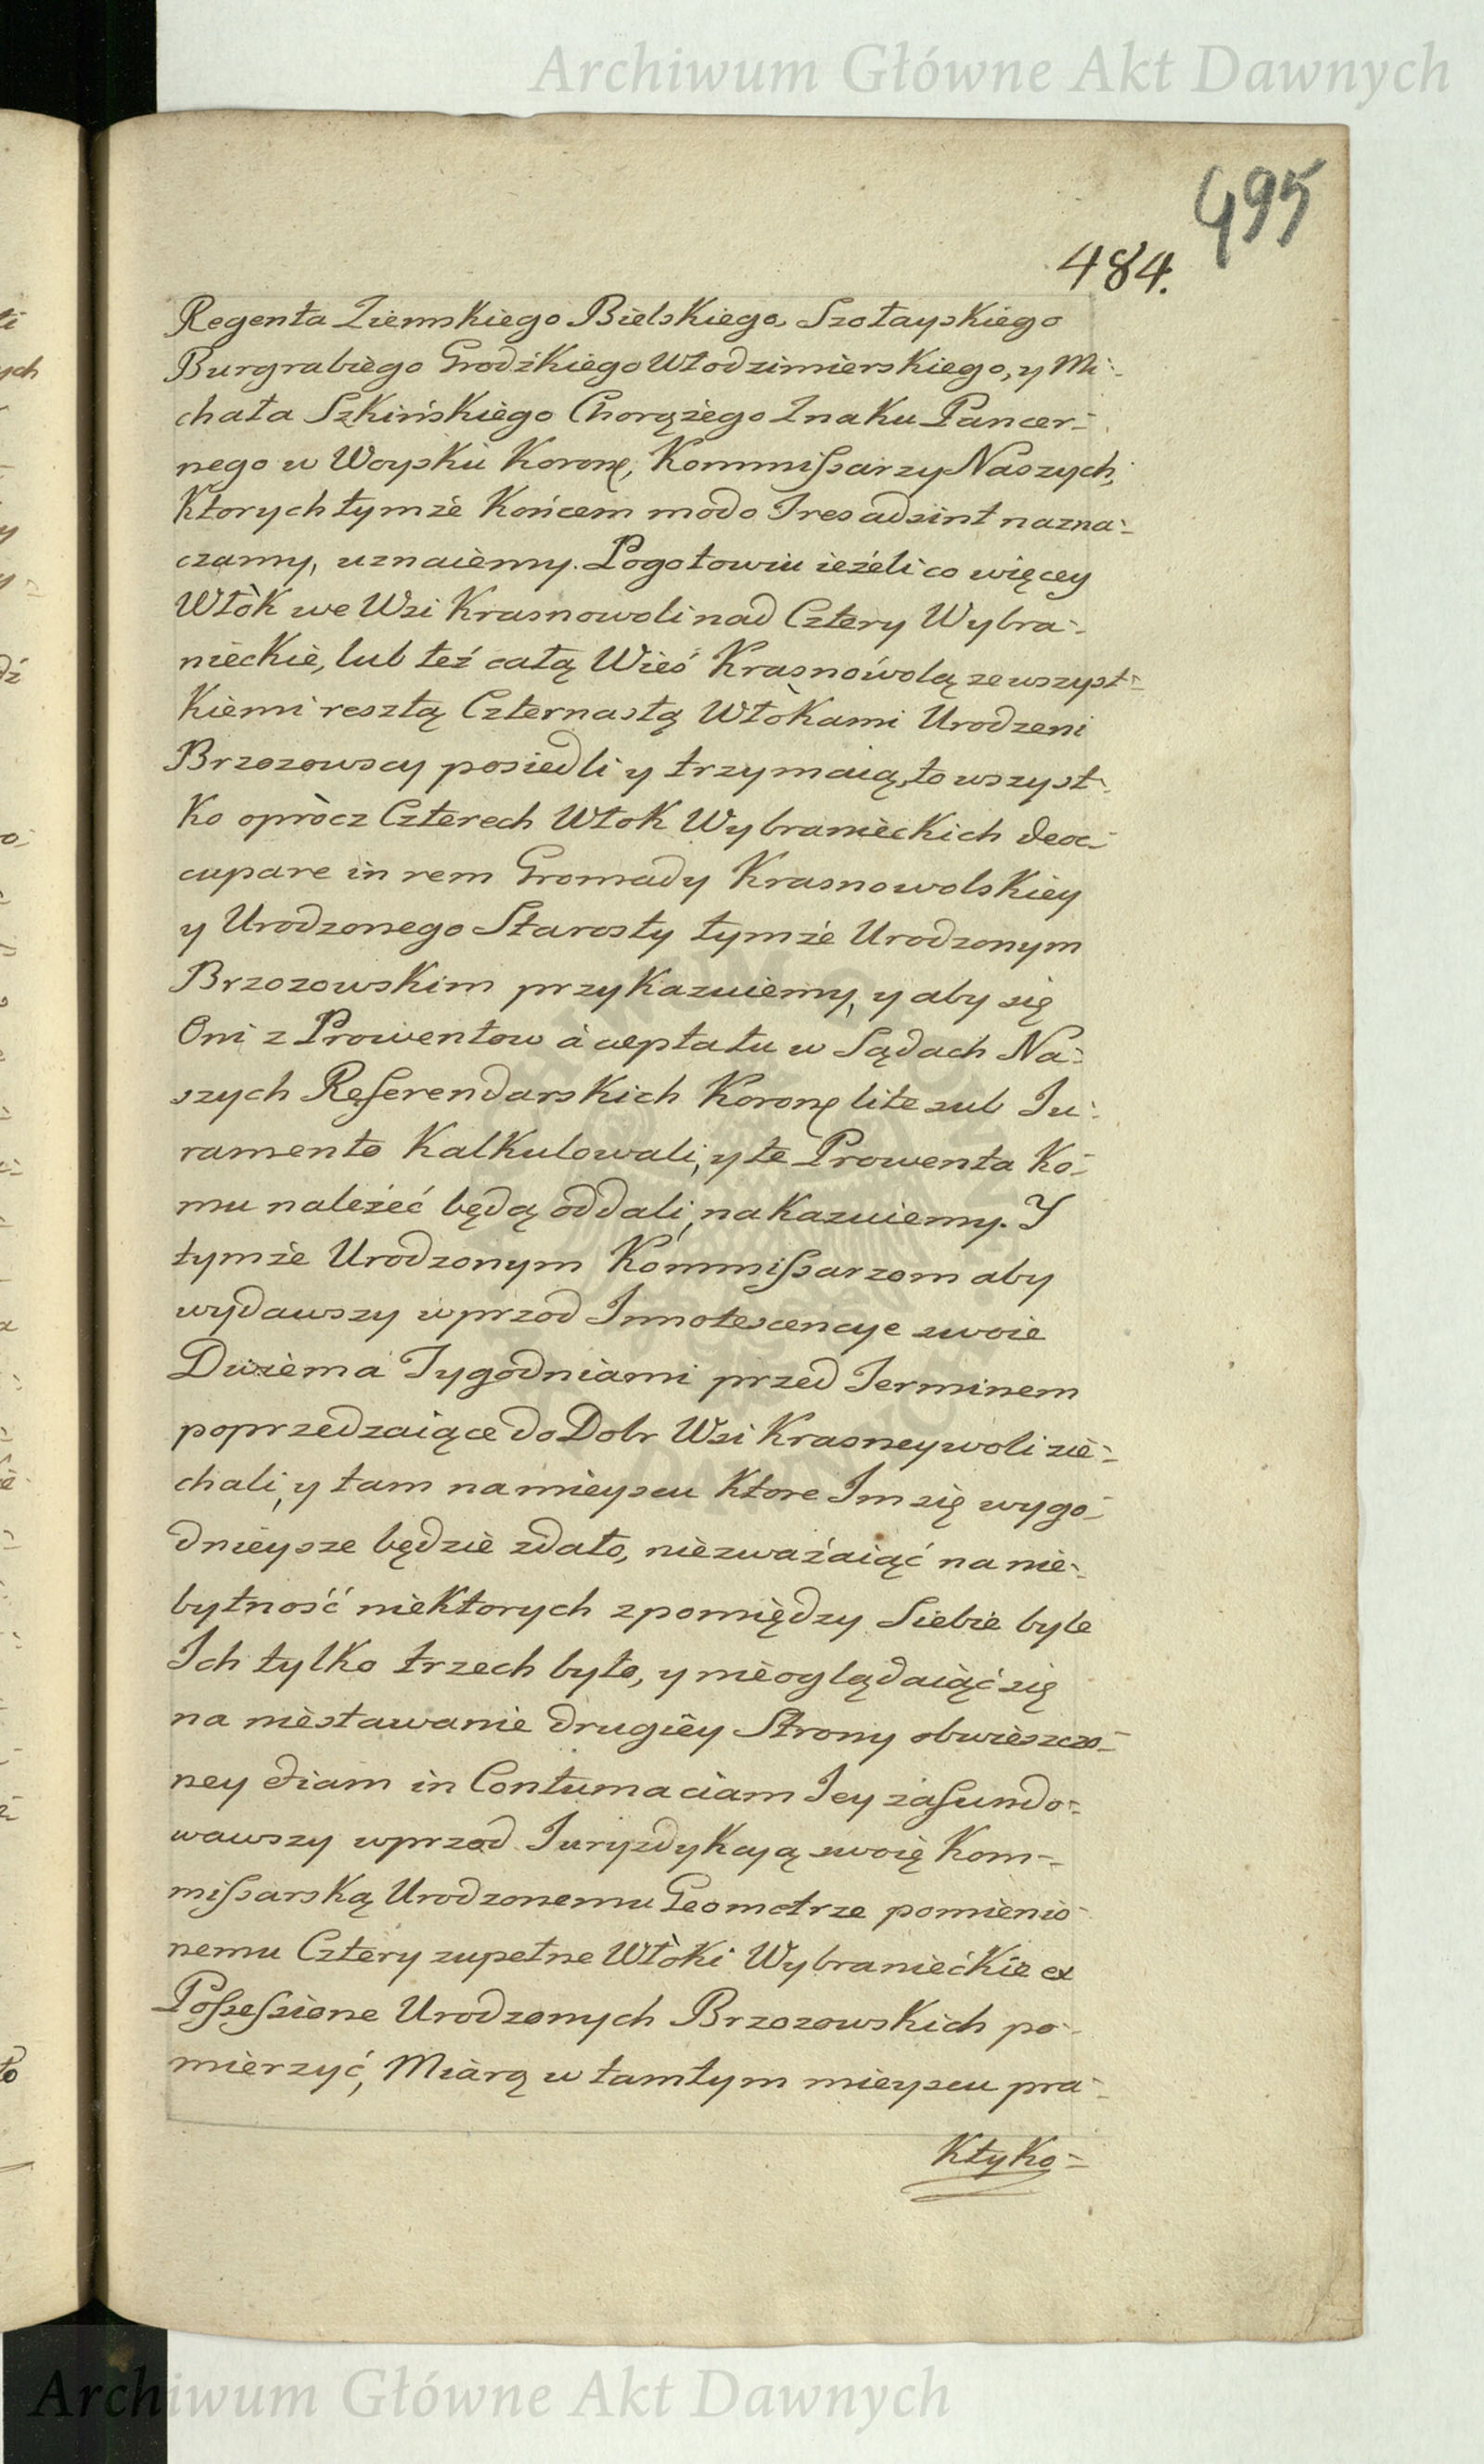 Archiwum Główne Akt Dawnych
495
484.
Regenta Ziemskiego Bielskiego, Szołayskiego
Burgrabiego Grodzkiego Włodzimierskiego, y Mi=
chała Szkińskiego Chorążego Znaku Pancer=
nego w Woysku Koronę, Kommißarzy Naszych,
Ktorych tymże Końcem modo Tres adsint nazna=
czamy, uznaiemy. Pogotowiu ieżeli co więcey
Włòk we Wsi Krasnowoli nad Cztery Wybra=
nieckie, lub też całą Wieś Krasnówolą ze wszyst=
Kiemi resztą Czternastą Włòkami Urodzeni
Brzozowscy posiedli y trzymaią, to wszyst=
Ko opròcz Czterech Włok Wybranieckich deoc=
cupare in rem Gromady Krasnowolskiey
y Urodzonego Starosty tymże Urodzonym
Brzozowskim przykazuiemy, y aby się
Oni z Prowentow à ceptatu w Sądach Na=
szych Referendarskich Koronę lite sub Ju=
ramento Kalkulowali, y te Prowenta Ko=
mu należeć będą oddali, nakazuiemy. Y
tymże Urodzonym Kommißarzom aby
wydawszy wprzod Innotescencye swoie
Dwiema Tygodniami przed Terminem
poprzedzaiące do Dobr Wsi Krasneywoli zie=
chali, y tam na mieyscu Ktore Im się wygo=
dnieysze będzie zdało, niezważaiąć na nie=
bytność niektorych z pomiędzy Siebie byle
Ich tylko trzech było, y nieoglądaiąć się
na niestawanie drugiey Strony obwieszczo=
ney etiam in Contumaciam Jey zafundo=
wawszy wprzod Juryzdykcyą swoię Kom=
mißarską Urodzonemu Geometrze pomienio=
nemu Cztery zupełne Włòki Wybranieckie ex
Poßeßione Urodzonych Brzozowskich po=
mierzyć, Miarą w tamtym mieyscu pra=
Ktyko=
Archiwum Główne Akt Dawnych